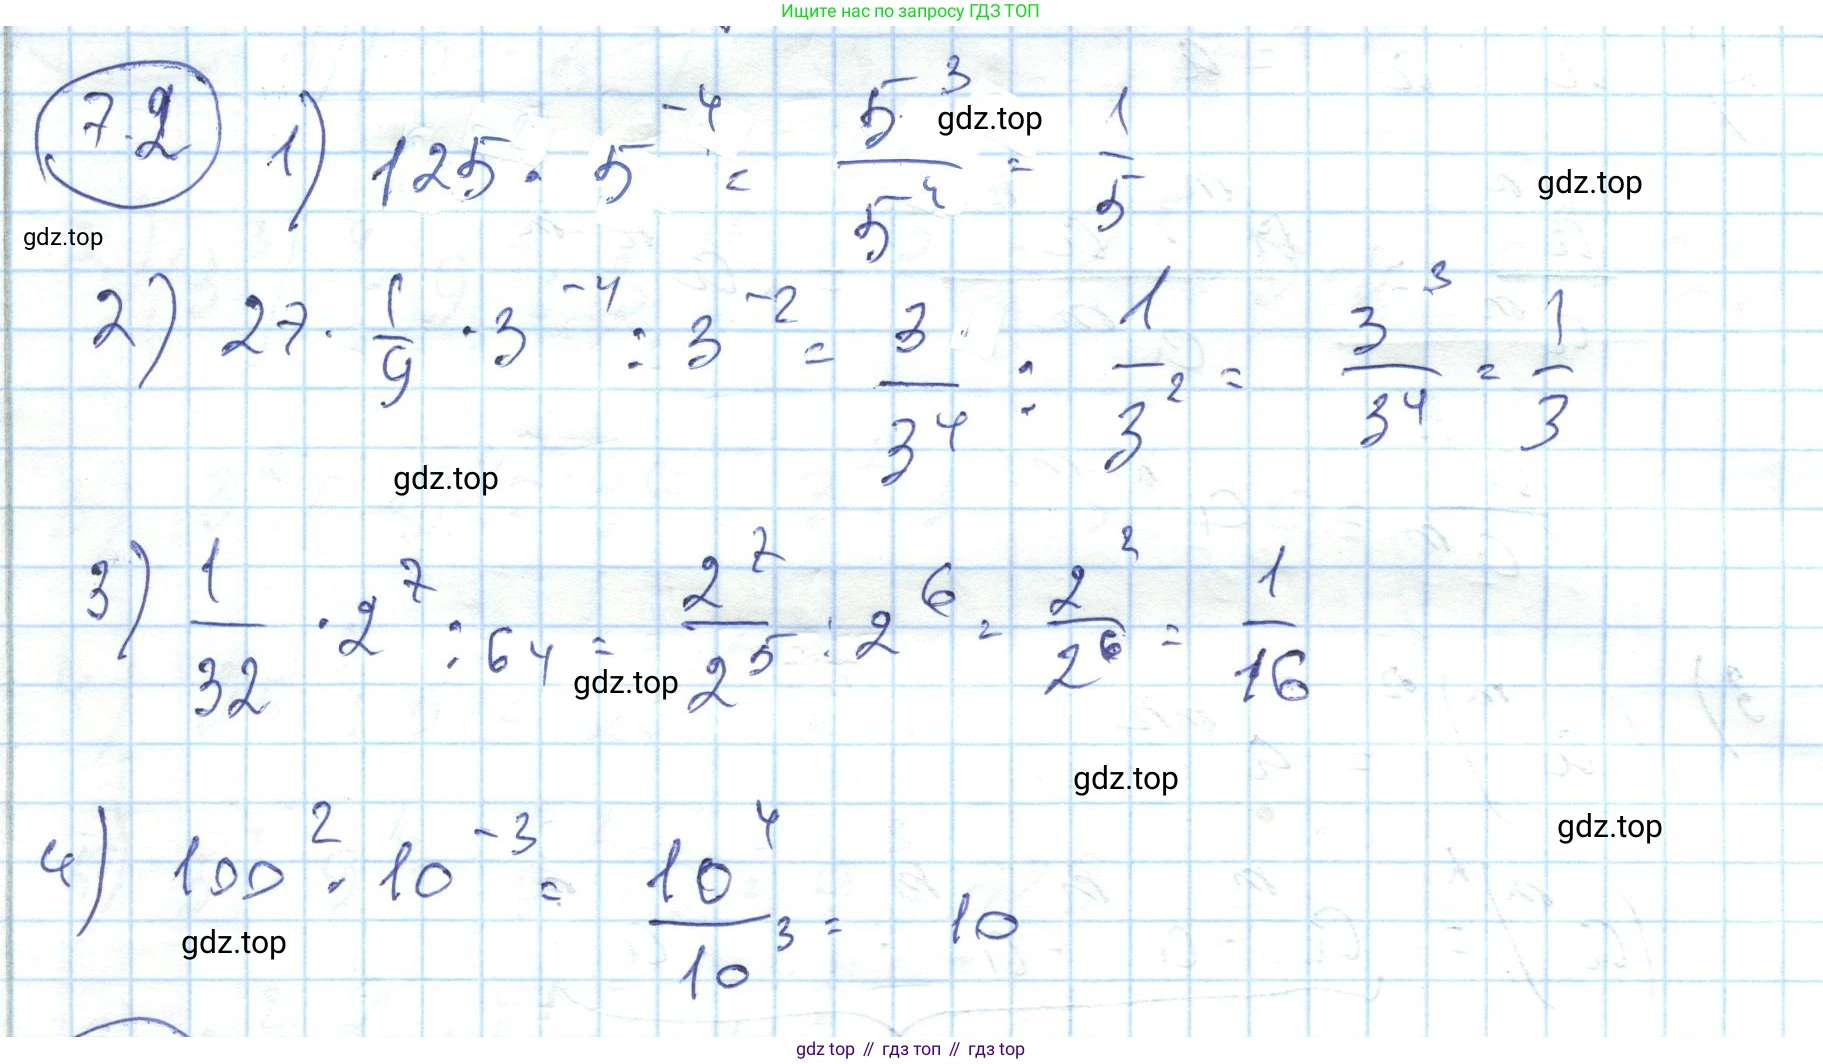 Ищите нас по запросу ГДЗ ТОП
7.2 1) 125 · 5^-4 = 5^3/5^4 = 1/5
gdz.top
gdz.top
gdz.top
2) 27 · 1/9 · 3^-4 : 3^-2 = 3/3^4 : 1/3^2 = 3^3/3^4 = 1/3
gdz.top
3) 1/32 · 2^7 : 64 = 2^7/2^5 : 2^6 = 2^2/2^6 = 1/16
gdz.top
gdz.top
gdz.top
4) 100^2 · 10^-3 = 10^4/10^3 = 10
gdz.top
gdz top // гдз топ // гдз top